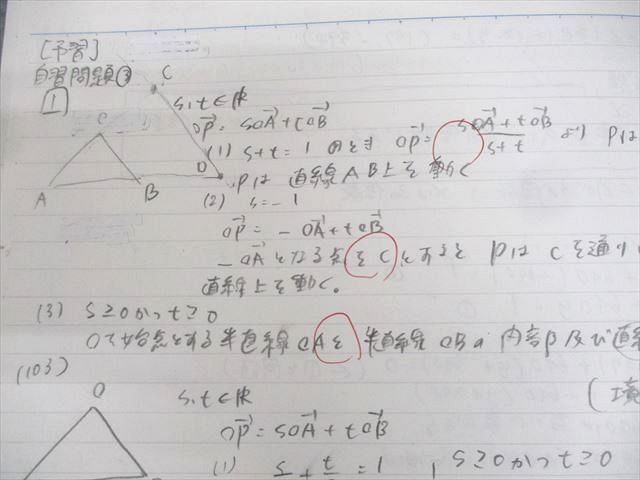 [予習]
自習問題③
1
C
O
A
B
D
s,t∈ℝ
OP = sOA + tOB
(1) s+t=1 のとき OP = sOA + tOB / s+t より Pは
Pは 直線AB上を動く
(2) s=-1
OP = -OA + tOB
-OAとなる点をCとすると PはCを通り
直線上を動く。
(3) s≧0かつt≧0
Oを始点とする半直線OAと 半直線OBの 内部及び
(103)
O
s,t∈ℝ
OP = sOA + tOB
(境
(1) s + t = 1 , s≧0かつt≧0